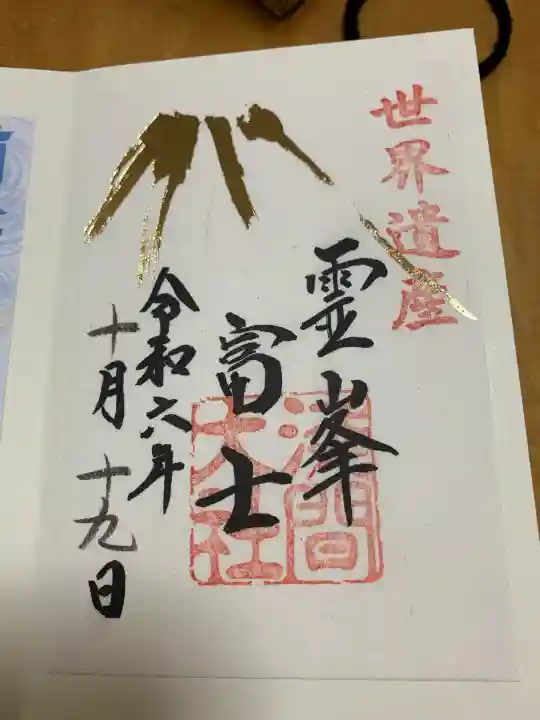 世界遺産
霊峯
富士
浅間
大社
令和六年
十月十九日